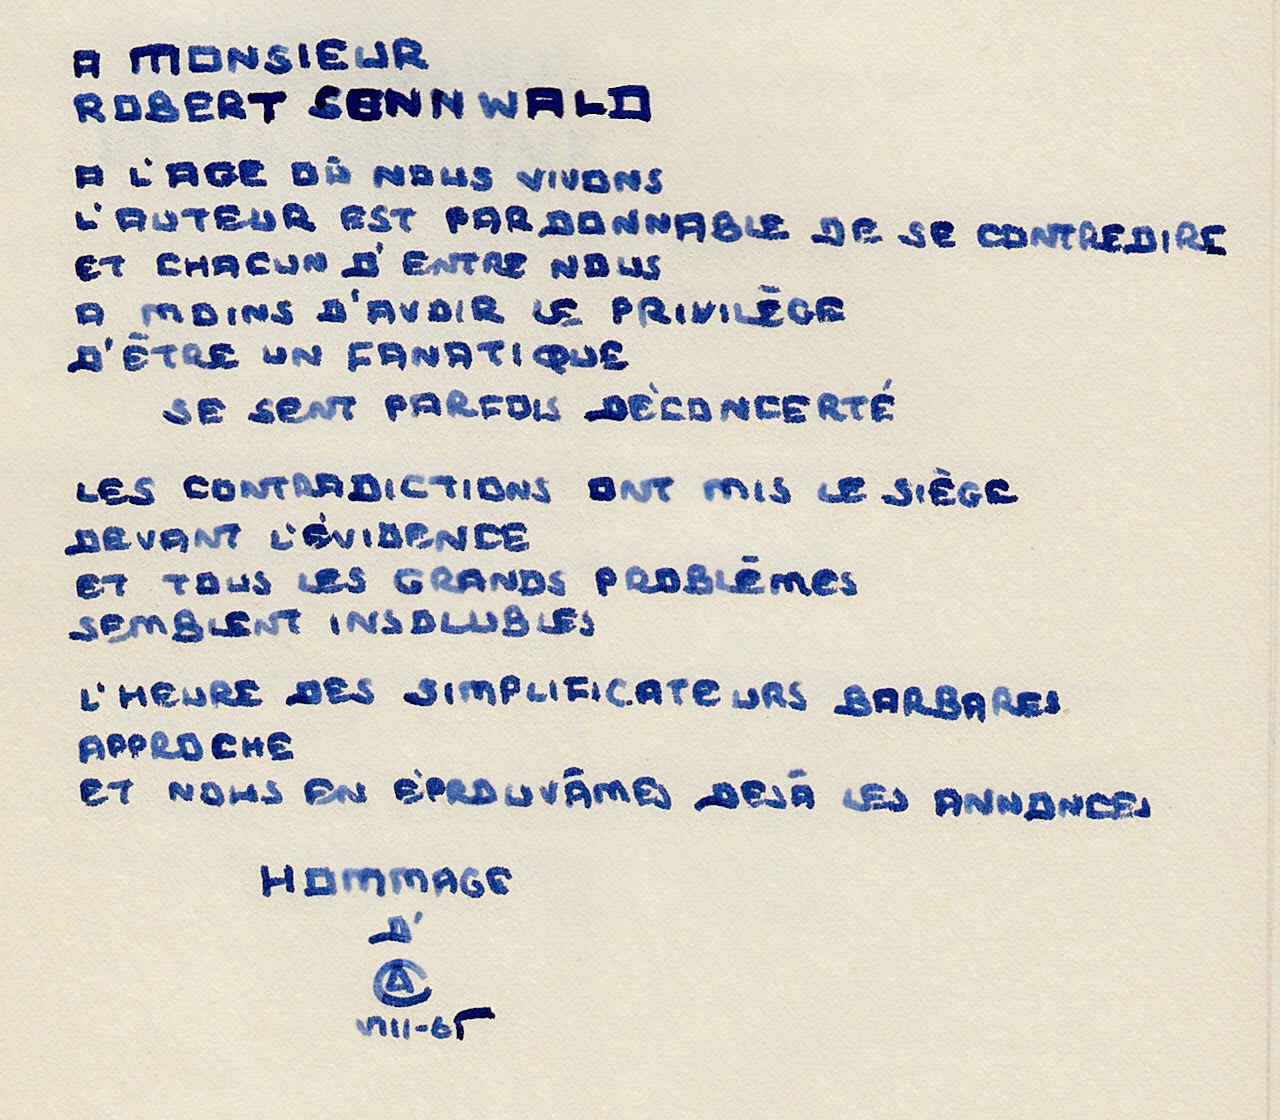 A MONSIEUR
ROBERT SENNWALD
A L'AGE OÙ NOUS VIVONS
L'AUTEUR EST PARDONNABLE DE SE CONTREDIRE
ET CHACUN D'ENTRE NOUS
A MOINS D'AVOIR LE PRIVILÈGE
D'ÊTRE UN FANATIQUE
SE SENT PARFOIS DÉCONCERTÉ
LES CONTRADICTIONS ONT MIS LE SIÈGE
DEVANT L'ÉVIDENCE
ET TOUS LES GRANDS PROBLÈMES
SEMBLENT INSOLUBLES
L'HEURE DES SIMPLIFICATEURS BARBARES
APPROCHE
ET NOUS EN ÉPROUVÂMES DEJÀ LES ANNONCES
HOMMAGE
D'
AC
VIII-65